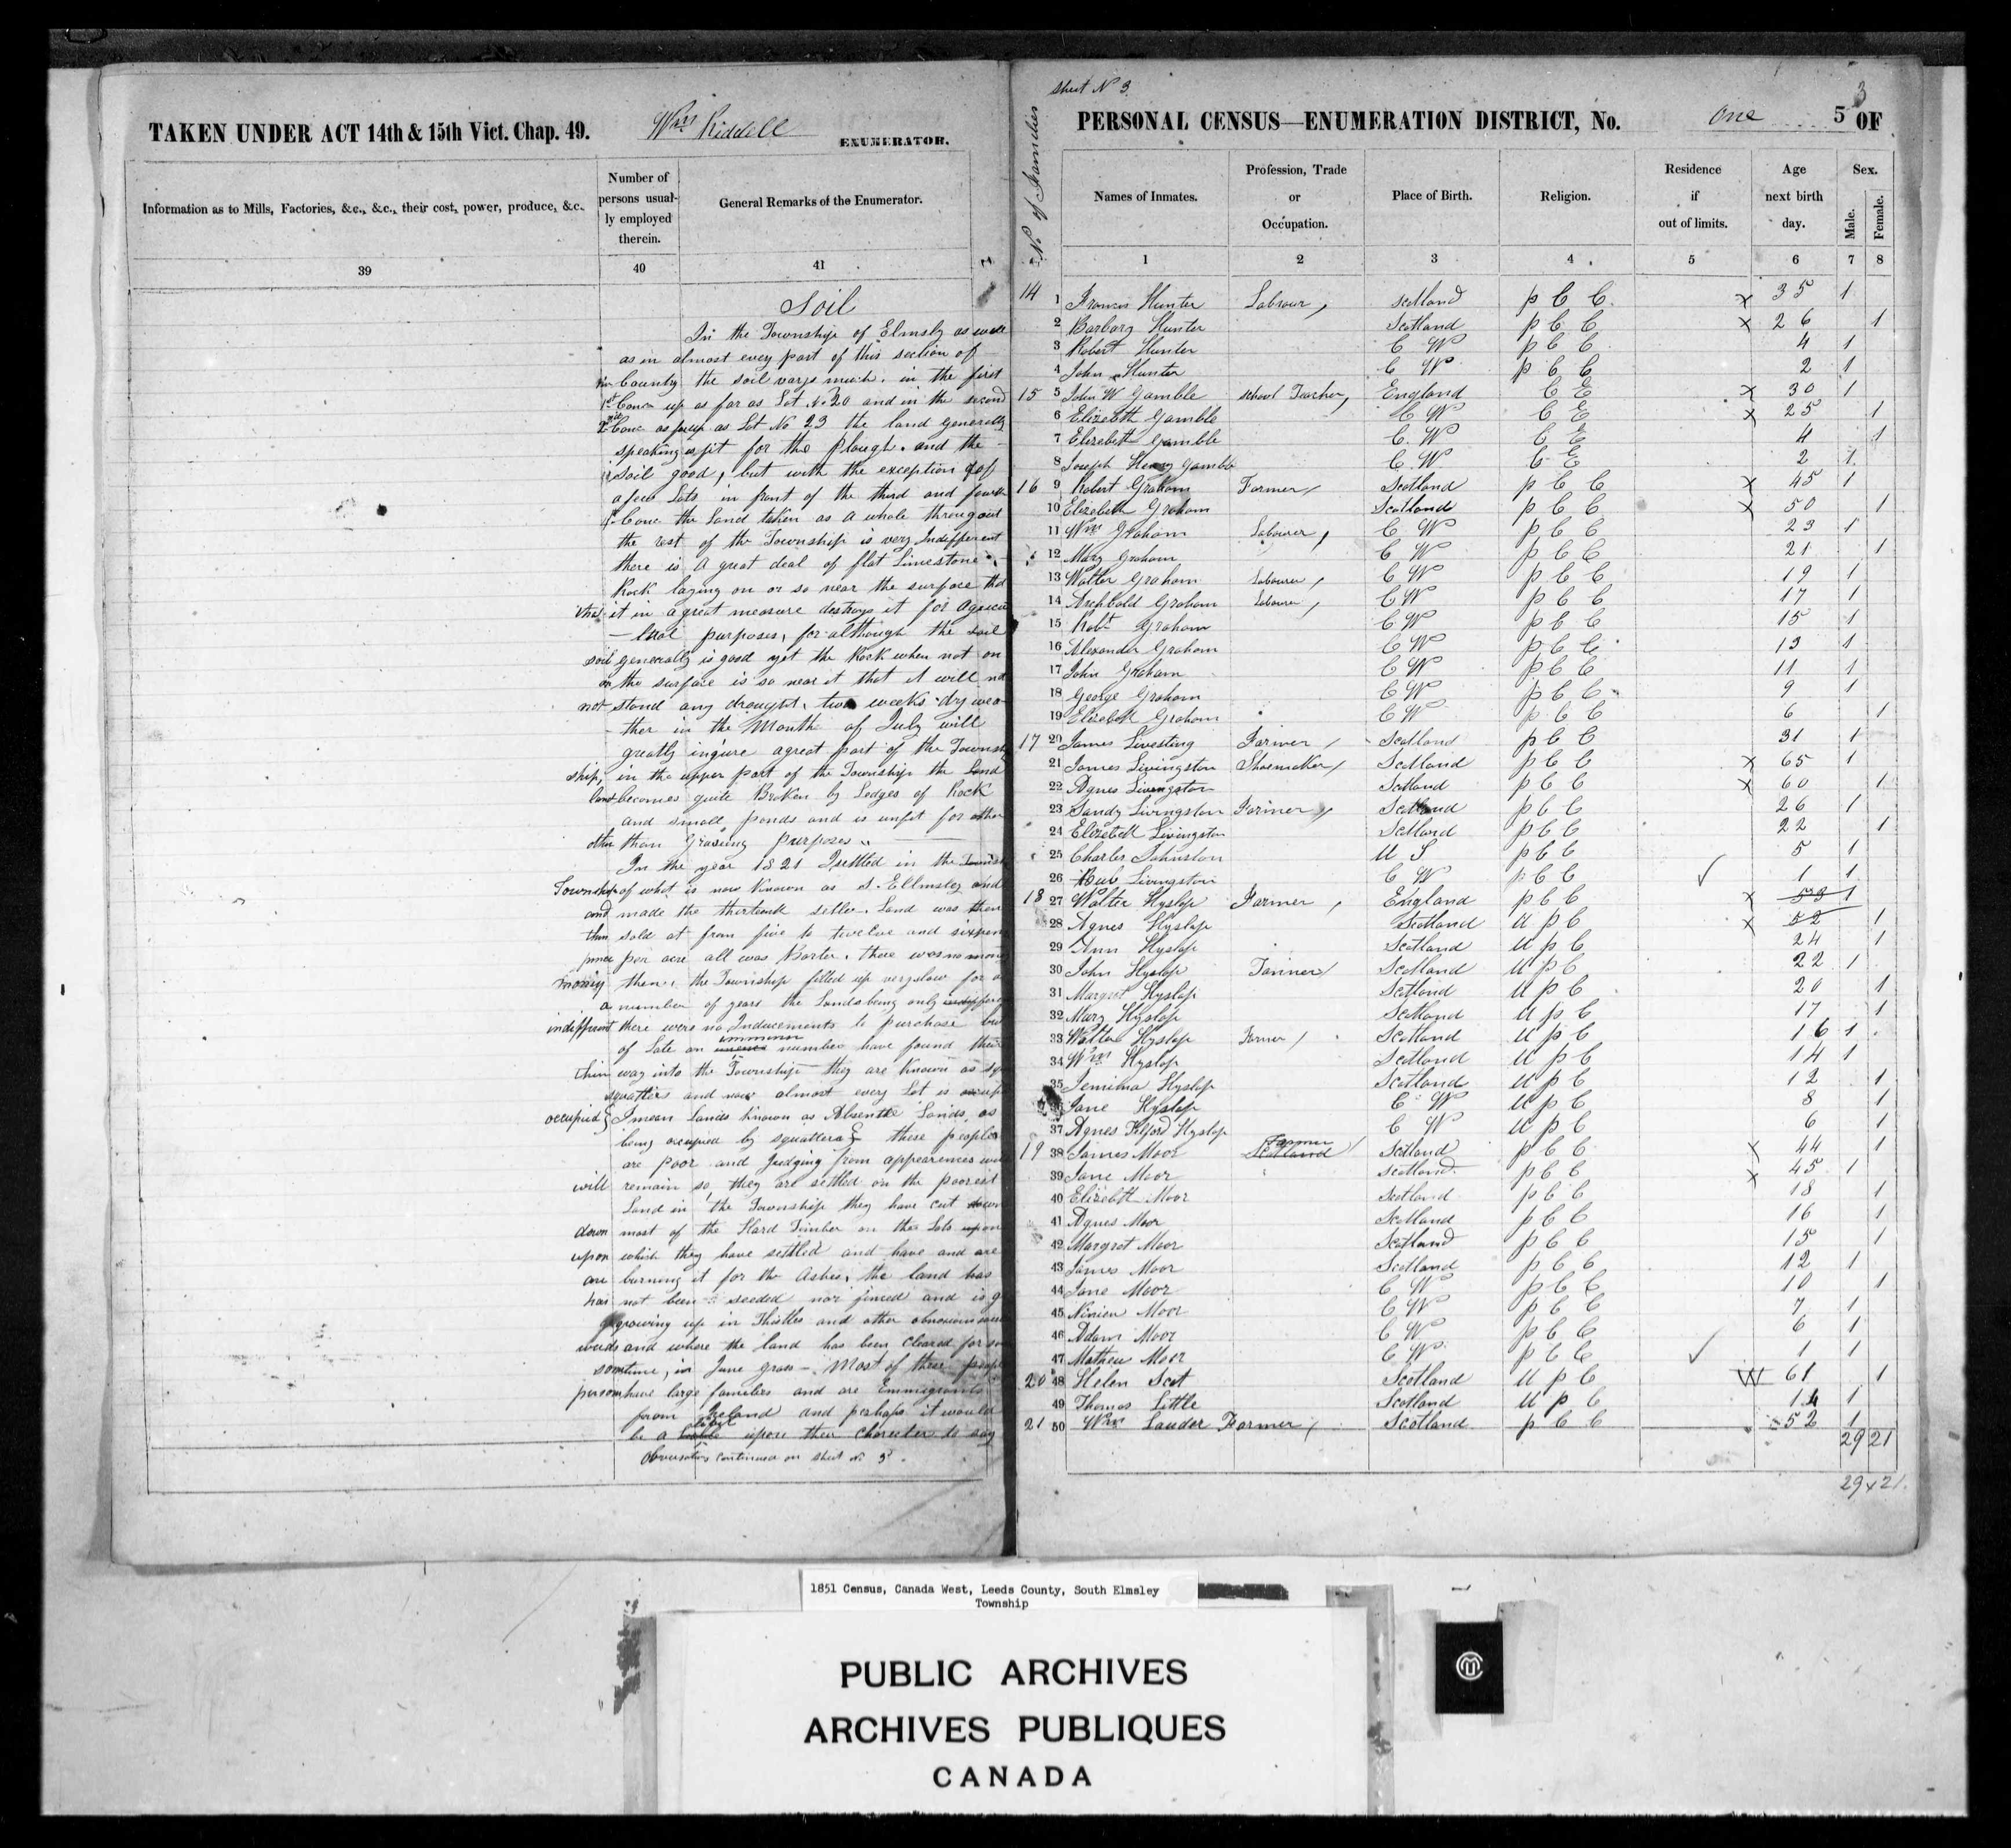 TAKEN UNDER ACT 14th & 15th Vict. Chap. 49. Wm Riddell ENUMERATOR.
Information as to Mills, Factories, &c., &c., their cost, power, produce, &c.
Number of persons usual-ly employed therein.
General Remarks of the Enumerator.
39 40 41
Soil
In the Township of Elmsly as well
as in almost every part of this section of
County the soil varys much. in the first
1st Conc up as far as Lot No 20 and in the second
2nd Conc as far up as Lot No 23 the land generally
speaking is fit for the Plough. and the
soil good, but with the exception of
a few Lots in front of the third and fourth
Conc the Land taken as a whole througout
the rest of the Township is very Indifferent
there is a great deal of flat Limestone
Rock laying on or so near the surface that
that it in a great measure destroys it for Agricu
-tural purposes, for although the soil
soil generally is good yet the Rock when not on
on the surface is so near it that it will not
not stand any drought. two weeks dry wea
-ther in the Month of July will
greatly ingure a great part of the Townsh
ship, in the upper part of the Township the Land
land becomes quite Broken by Ledges of Rock
and small ponds and is unfit for other
other than Grasing purposes
In the year 1821 I settled in the Townsh
Township of what is now Known as S. Ellmsley and
and made the thirteenth settler. Land was then
then sold at from five to twelve and sixpen
pence per acre all was Barter. there was no money
money then, the Township filled up very slow for a
a number of years the Lands being only
indifferent there were no Inducements to purchase but
of Late an immense number have found their
their way into the Township they are Known as Sq
squatters and now almost every Lot is occup
occupied { I mean Lands known as Absentee Lands, as
being occupied by squatters } these people
are poor and Judging from appearences will
will remain so, they are settled on the poorest
Land in the Township they have cut down
down most of the Hard Timber on the Lots upon
upon which they have settled and have and are
are burning it for the Ashes. the land has
has not been seeded nor fenced and is g
growing up in Thistles and other obnoxious weeds
weeds and where the land has been cleared for som
sometime, in June grass - Most of these peopl
person have large families and are Emmigrants
from Ireland and perhaps it would
be a upon their character to say
Observations continued on sheet No 5.
Sheet No 3.
PERSONAL CENSUS—ENUMERATION DISTRICT, No. One 5 3 OF
No of Families
Names of Inmates.
Profession, Trade or Occupation.
Place of Birth.
Religion.
Residence if out of limits.
Age next birth day.
Sex.
Male. Female.
1 2 3 4 5 6 7 8
14 1 Francis Hunter Labrour, Scotland P C C x 35 1
2 Barbary Hunter Scotland P C C x 26 1
3 Robert Hunter C W P C C 4 1
4 John Hunter C W P C C 2 1
15 5 John W Gamble School Teacher, England C E x 30 1
6 Elizebeth Gamble C W C E x 25 1
7 Elizebeth Gamble C. W C E 4 1
8 Joseph Henry Gamble C. W C E 2 1
16 9 Robert Graham Farmer, Scotland P C C x 45 1
10 Elizebeth Graham Scotland P C C x 50 1
11 Wm Graham Labourer, C W P C C 23 1
12 Mary Graham C W P C C 21 1
13 Walter Graham Labourer, C W P C C 19 1
14 Archbald Graham Labourer, C W P C C 17 1
15 Robt Graham C W P C C 15 1
16 Alexander Graham C W P C C 13 1
17 John Graham C W P C C 11 1
18 George Graham C W P C C 9 1
19 Elizebeth Graham C W P C C 6 1
17 20 James Livesting Farmer, Scotland P C C 31 1
21 James Livingston Shoemaker, Scotland P C C x 65 1
22 Agnes Livingston Scotland P C C x 60 1
23 Sandy Livingston Farmer, Scotland P C C 26 1
24 Elizebeth Livingston Scotland P C C 22 1
25 Charles Johnston U S P C C 5 1
26 Livingston C W P C C ✓ 1 1
18 27 Walter Hyslop Farmer, England P C C x 53 1
28 Agnes Hyslop Scotland U P C x 52 1
29 Ann Hyslop Scotland U P C 24 1
30 John Hyslop Farmer Scotland U P C 22 1
31 Margret Hyslop Scotland U P C 20 1
32 Mary Hyslop Scotland U P C 17 1
33 Walter Hyslop Farmer, Scotland U P C 16 1
34 Wm Hyslop Scotland U P C 14 1
35 Jemima Hyslop Scotland U P C 12 1
Jane Hyslop C W U P C 8 1
37 Agnes Hyslop C W U P C 6 1
19 38 James Moor Farmer Scotland Scotland P C C x 44 1
39 Jane Moor Scotland P C C x 45 1
40 Elizebeth Moor Scotland P C C 18 1
41 Agnes Moor Scotland P C C 16 1
42 Margret Moor Scotland P C C 15 1
43 James Moor Scotland P C C 12 1
44 Jane Moor C W P C C 10 1
45 Ninien Moor C W P C C 7 1
46 Adam Moor C W P C C 6 1
47 Mathew Moor C W P C C ✓ 1 1
20 48 Helen Scot Scotland U P C W 61 1
49 Thomas Little Scotland U P C 14 1
21 50 Wm Lauder Farmer, Scotland P C C 52 1
29 21
29 x 21.
1851 Census, Canada West, Leeds County, South Elmsley
Township
PUBLIC ARCHIVES
ARCHIVES PUBLIQUES
CANADA